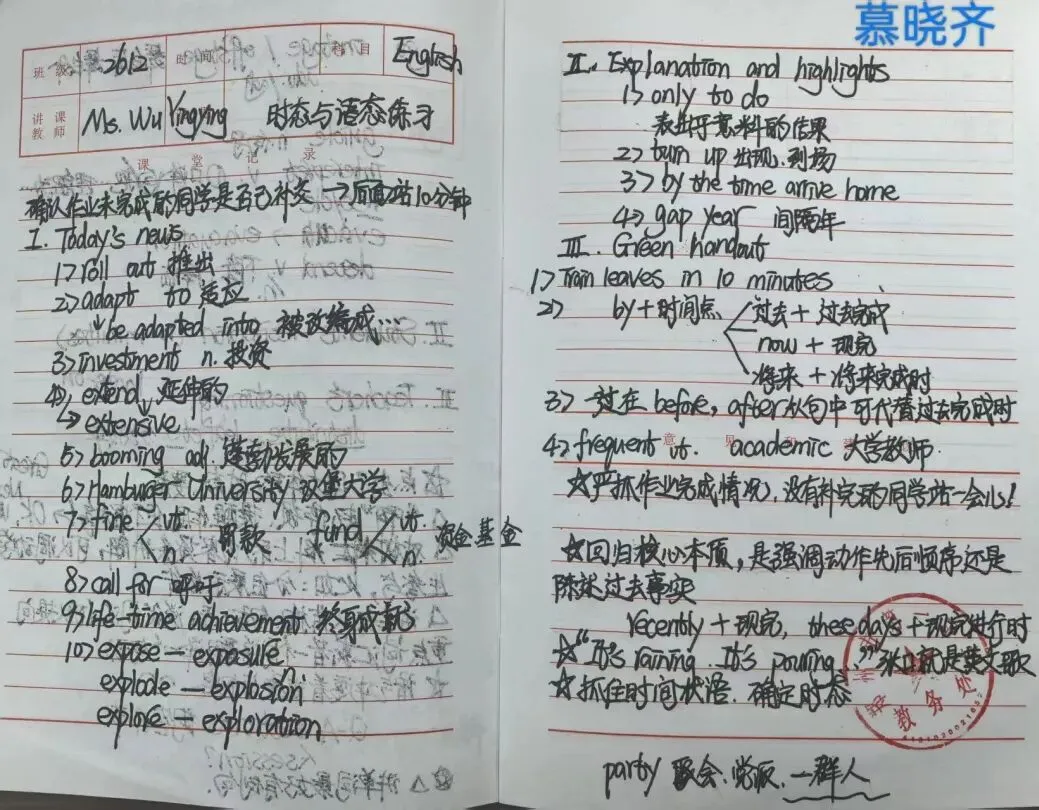 慕晓齐
班级 2612 时间 科目 English
讲课教师 Ms. Wu Yingying 时态与语态练习
课堂记录
确认作业未完成的同学是否已补交 → 后面站10分钟
I. Today's news
1> roll out 推出
2> adapt to 适应
↓ be adapted into 被改编成...
3> investment n. 投资
4> extend 延伸的
↳ extensive
5> booming adj. 蓬勃发展的
6> Hamburger University 汉堡大学
7> fine vt. n. 罚款 fund vt. n. 资金 基金
8> call for 呼吁
9> life-time achievement 终身成就
10> expose — exposure
explode — explosion
explore — exploration
II. Explanation and highlights
1> only to do
表出乎意料的结果
2> turn up 出现.到场
3> by the time arrive home
4> gap year 间隔年
III. Green handout
1> Train leaves in 10 minutes
2> by + 时间点 过去 + 过去完成
now + 现完
将来 + 将来完成时
3> 一过在 before, after 从句中可代替过去完成时
4> frequent vt. academic 大学教师
☆严抓作业完成情况, 没有补完的同学站一会儿!
☆回归核心本质, 是强调动作先后顺序还是
陈述过去事实
recently + 现完, these days + 现完进行时
☆"It's raining. It's pouring..." 张口就是英文歌
☆抓住时间状语. 确定时态
教务处
party 聚会.党派.一群人